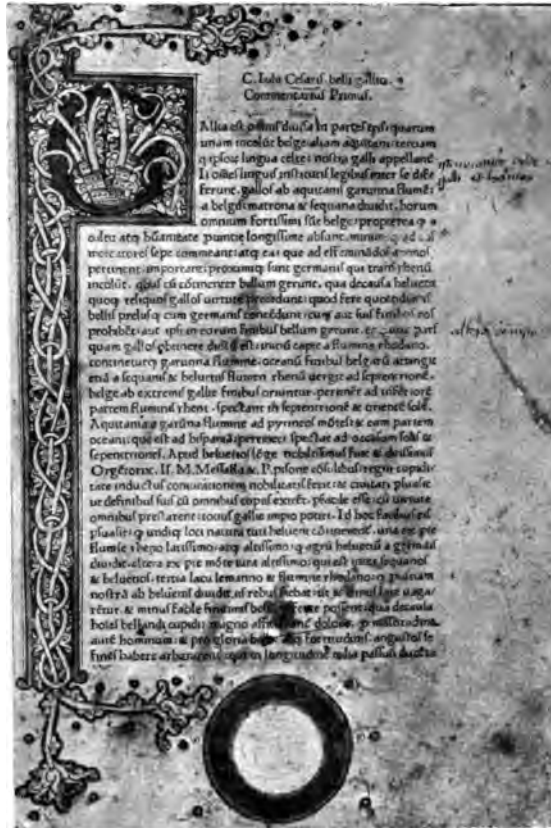 C. Iulii Cesaris belli gallici
Commentarius Primus.
GAllia est omnis diuisa in partes tris: quarum
unam incolūt belge: aliam aquitani: tertiam
q ipsorū lingua celte: nostra galli appellant̄
Hi oēs lingua institutis legibus inter se diffe
ferunt. gallos ab aquitanis garunna flumē:
a belgis matrona & sequana diuidit. horum
omnium fortissimi sūt belge: propterea q a
cultu atq hūanitate longissime absunt. minimeq ad eos
mercatores sepe commeant: atq ea: que ad effeminādos animos
pertinent: important: proximiq sunt germanis qui trans rhenū
incolūt. quibus cū continenter bellum gerunt. qua de causa heluetii
quoq reliquos gallos uirtute precedunt: quod fere quotidianis
bellis preliisq cum germanis contēdunt: cum aut suis finibus eos
prohibēt: aut ipsi in eorum finibus bellum gerunt. pars
quam gallos obtinere dictū est: initiū capit a flumine rhodano.
continetur garunna flumine. oceanū finibus belgarū attingit
etiā a sequanis & heluetiis flumen rhenū uergit ad septentrionē.
belge ab extremis gallie finibus oriuntur. pertinēt ad inferiorē
partem fluminis rheni. spectant ī septentrionē & orientē solē.
Aquitania a garūna flumine ad pyrineos mōtes & eam partem
oceani: que est ad hispaniā pertinet: spectat ad occasum solis &
septentriones. Apud heluetios lōge nobilissimus fuit & ditissimus
Orgetorix. Is M. Messalla & P. pisone cōsulibus regni cupidi
tate inductus coniurationem nobilitatis fecit: & ciuitati
ut de finibus suis cū omnibus copiis exirēt. facile esse: cū uirtute
omnibus prestarent: totius gallie imperio potiri. Id hoc facilius eis
q undiq loci natura heluetii continent̄. una ex pte
flumie rheno latissimo: atq altissimo: q agrū heluetiū a germanis
diuidit. altera ex pte mōte iura altissimo: qui est inter sequanos
& heluetios. tertia lacu lemanno & flumine rhodano: q prouinciam
nostrā ab heluetiis diuidit. is rebus fiebat: ut & minus late uaga
rētur. & minus facile finitimis bellū inferre possent: qua de causa
hoies bellandi cupidi magno dolore. p multitudine
autē hominum: & pro gloria belli atq fortitudinis. angustos se
fines habere arbitrabant̄: qui in longitudinē milia passuū ducēta